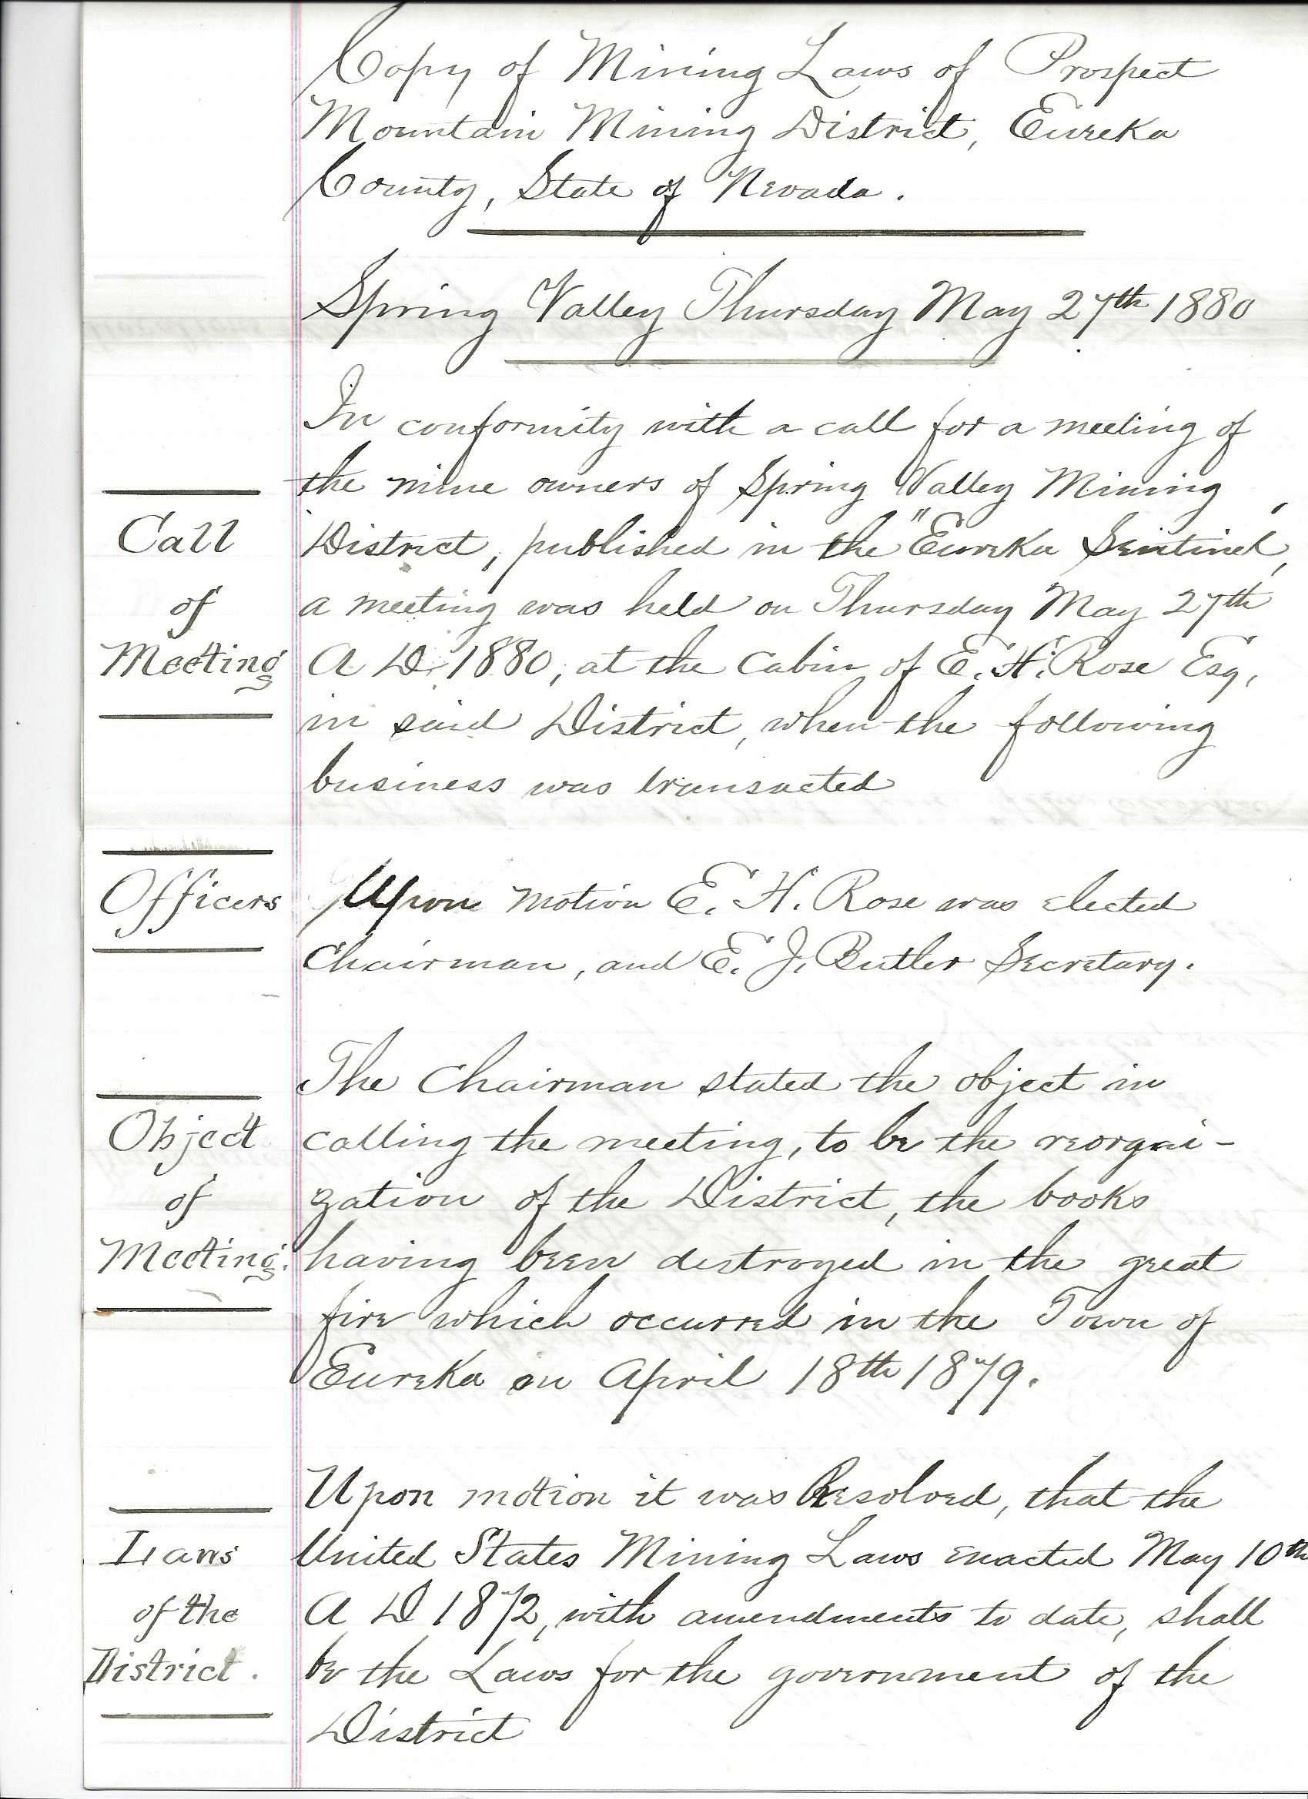 Copy of Mining Laws of Prospect
Mountain Mining District, Eureka
County, State of Nevada.
Spring Valley Thursday May 27th 1880
In conformity with a call for a meeting of
the mine owners of Spring Valley Mining
District, published in the "Eureka Sentinel,"
a meeting was held on Thursday May 27th
A D 1880, at the Cabin of E. H. Rose Esq,
in said District, when the following
business was transacted
Call
of
Meeting
Officers
Upon motion E. H. Rose was elected
Chairman, and E. J. Butler Secretary.
The Chairman stated the object in
calling the meeting, to be the reorgni-
zation of the District, the books
having been destroyed in the great
fire which occurred in the Town of
Eureka on April 18th 1879.
Object
of
Meeting.
Upon motion it was Resolved, that the
United States Mining Laws enacted May 10th
A D 1872, with amendments to date, shall
be the Laws for the government of the
District
Laws
of the
District.